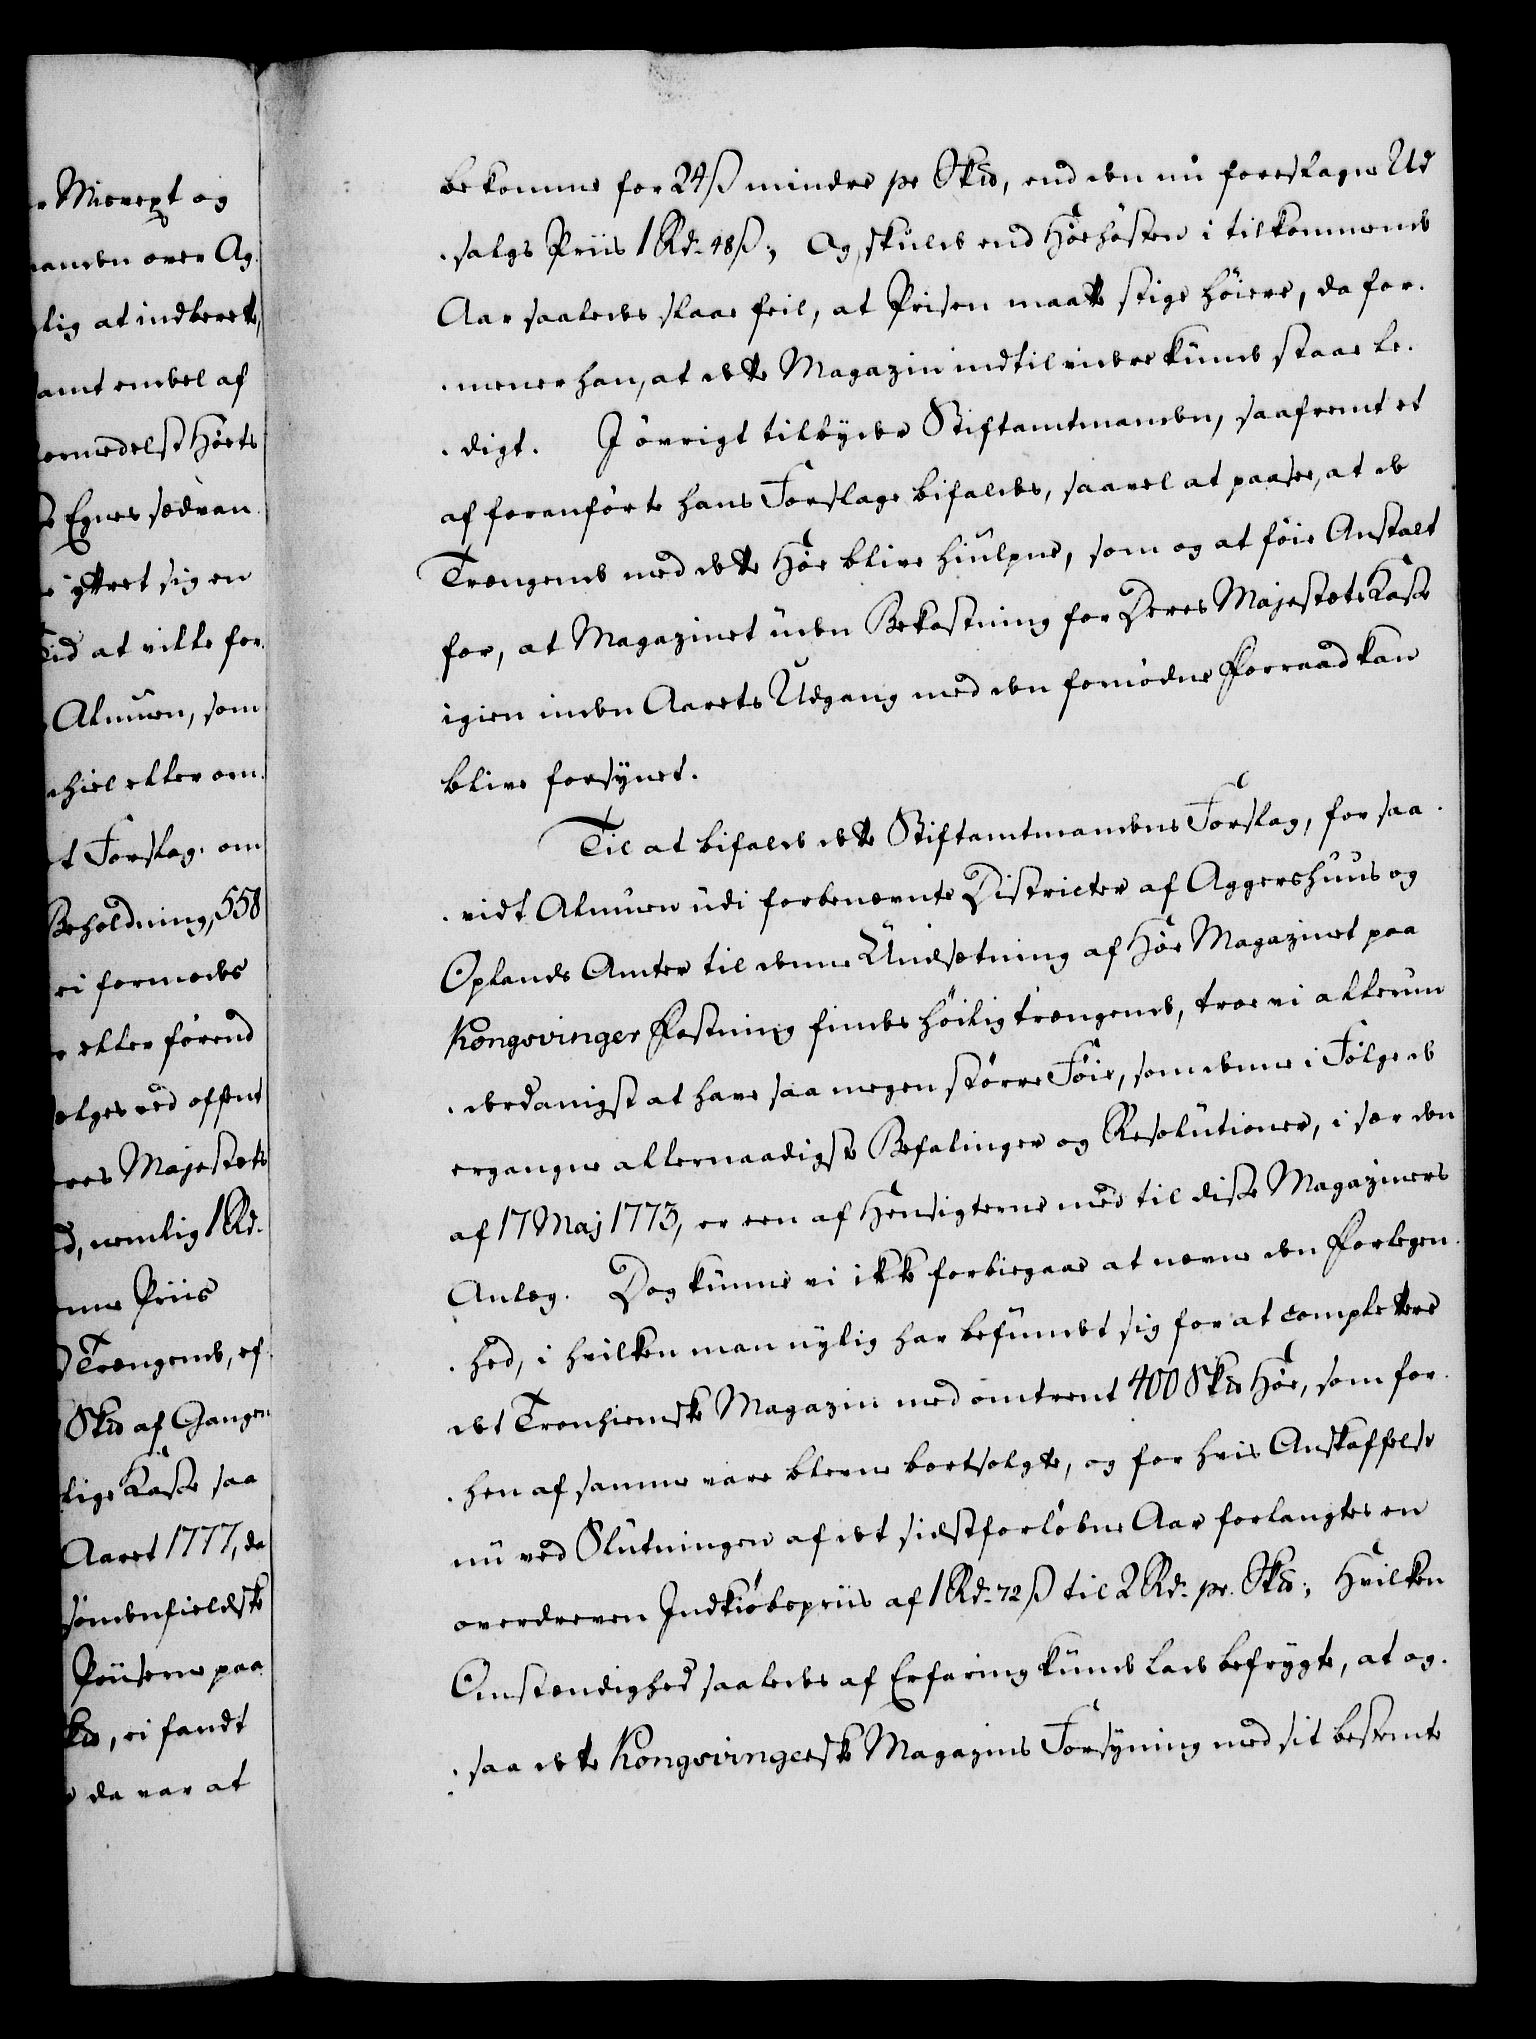 Misvext og
anden over Ag.
lig at indberette,
samt endel af
formedelst Høets
Egnes sædvan
yttret sig en
Tid at ville for.
Almuen, som
hiel eller om.
t Forslag. om
Beholdning, 558
ei formodes
eller førend
sælges ved offent
eres Majestæts
d, nemlig 1 Rd.
enne Priis
Trængende, ef.
Skd af Gangen
lige Kasse saa
Aaret 1777, da
søndenfieldske
Priiserne paa
kd, ei fandt
da var at
bekomme for 24 ß mindre pr Skd, end den nu foreslagne Ud
salgs Priis 1 Rd. 48 ß; Og, skulde end Höehösten i tilkommende
Aar saaledes slaae feil, at Prisen maatte stige höiere, da for.
meener han, at dette Magazin indtil videre kunde staae le.
digt. I övrigt tilbyder Stiftamtmanden, saafremt et
af foranförte hans Forslage bifaldes, saavel at paasee, at de
Trængende med dette Höe blive hiulpne, som og at föie Anstalt
for, at Magazinet uden Bekostning for Deres Majestæts Kasse
igien inden Aarets Udgang med den fornödne Forraad kan
blive forsynet.
Til at bifalde dette Stiftamtmandens Forslag, for saa
vidt Almuen udi forbenævnte Districter af Aggershuus og
Oplands Amter til denne Undsætning af Höe Magazinet paa
Kongsvinger Fæstning findes höilig trængende, troe vi allerun
derdanigst at have saa megen större Föie, som denne i Fölge de
ergangne allernaadigste Befalinger og Resolutioner, i sær den
af 17 Maj 1773, er een af Hensigterne med til disse Magaziners
Anlæg. Dog kunne vi ikke forbiegaae at nævne den Forlegen
hed, i hvilken man nylig har befundet sig for at complettere
det Tronhiemske Magazin med omtrent 400 Skd Höe, som for
hen af samme vare blevne bortsolgte, og for hvis Anskaffelse
nu ved Slutningen af det sidstforlöbne Aar forlangtes en
overdreven Indkiöbspriis af 1 Rd. 72 ß til 2 Rd. pr. Skd; Hvilken
Omstændighed saaledes af Erfaring kunde lade befrygte, at og.
saa dette Kongsvingerske Magazins Forsyning med sit bestemte